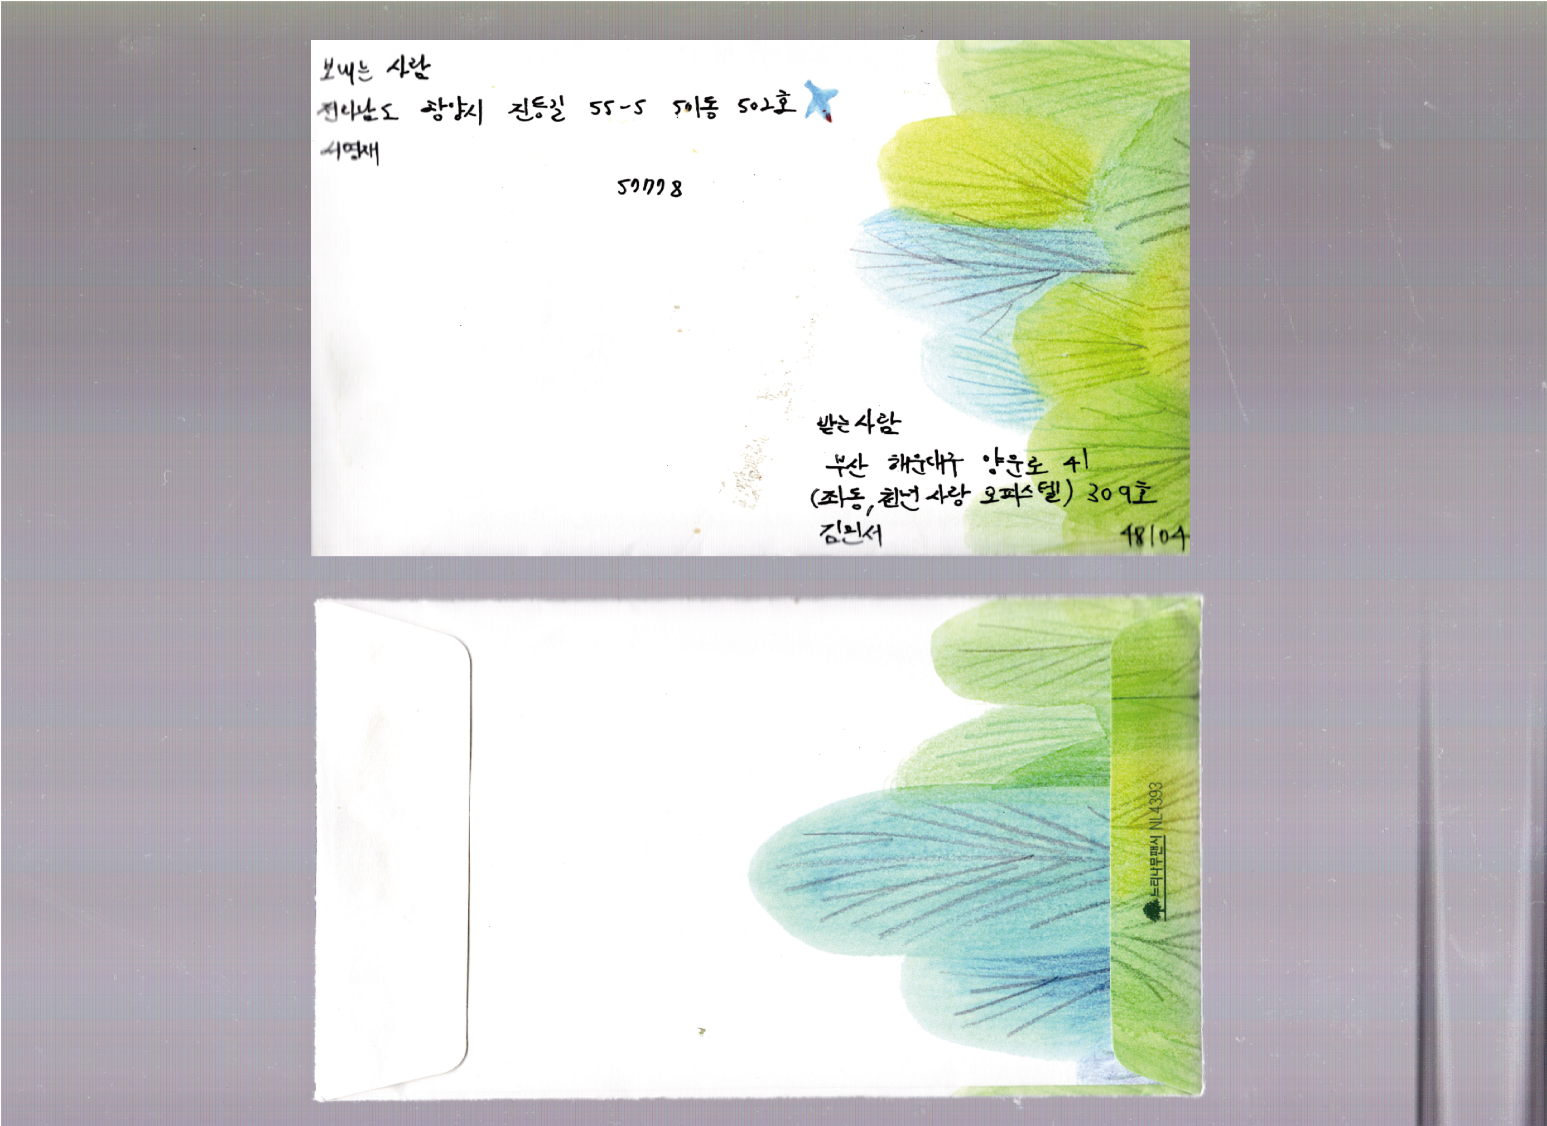 보내는 사람
전라남도 광양시 진등길 55-5 501동 502호
서영재
57778
받는사람
부산 해운대구 양운로 41
(좌동, 훤넌 사랑 오피스텔) 309호
김민서
48104
느티나무팬시 NL4393